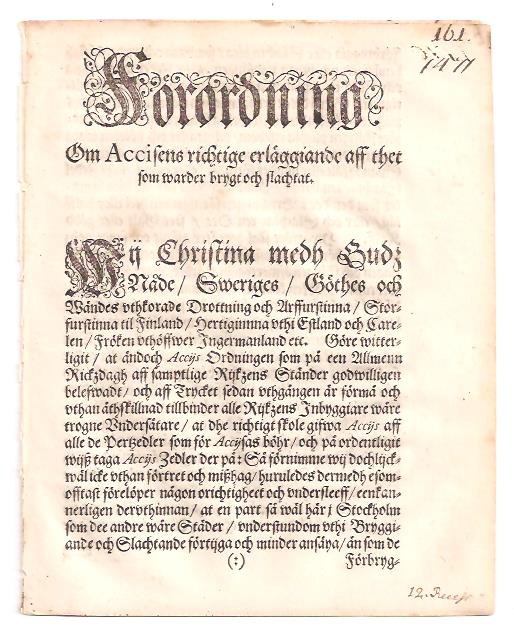 161.
Förordning
Om Accisens richtige erläggiande aff thet
som warder brygt och slachtat.
Wij Christina medh Gudz
Nåde / Sweriges / Göthes och
Wändes vthkorade Drottning och Arffurstinna / Stor-
furstinna til Finland / Hertiginna vthi Estland och Care-
len / Fröken vthöffwer Ingermanland etc. Göre witter-
ligit / at ändoch Accijs Ordningen som på een Allmenn
Rickzdagh aff samptlige Rijkzens Ständer godwilligen
beleswadt / och aff Trycket sedan vthgången är förmå och
vthan åthskillnad tillbinder alle Rijkzens Inbyggiare wäre
trogne Vndersåtare / at dhe richtigt skole gifwa Accijs aff
alle de Pertzedler som för Accijsas böhr / och på ordentligit
wijß taga Accijs Zedler der på: Så förnimme wij doch lijck-
wäl icke vthan förtret och mißhag / huruledes dermedh esom-
offtast förelöper någon orichtigheet och vndersleeff / eenkan-
nerligen dervthinnan / at en part så wäl här j Stockholm
som dee andre wåre Städer / vnderstundom vthi Bryggi-
ande och Slachtande förtijga och minder ansäya / än som de
(:) Förbryg-